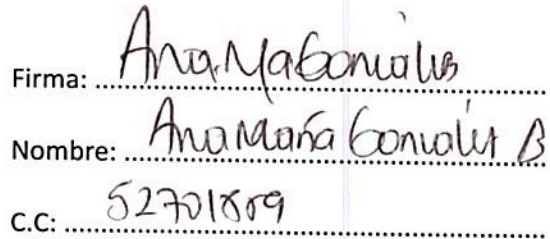 Firma: Ana Ma Gonzalez
Nombre: Ana Maria Gonzalez B
C.C: 52701889